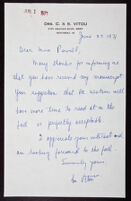 JUL 2 1971
DRS. C. & B. VITOU
June 27, 1971
Dear Miss Powell,
Many thanks for informing me
that you have received my manuscript.
Your suggestion that Dr.
have more time to read it in the fall
is perfectly acceptable.
I appreciate your interest and
am looking forward to the fall.
Sincerely yours,